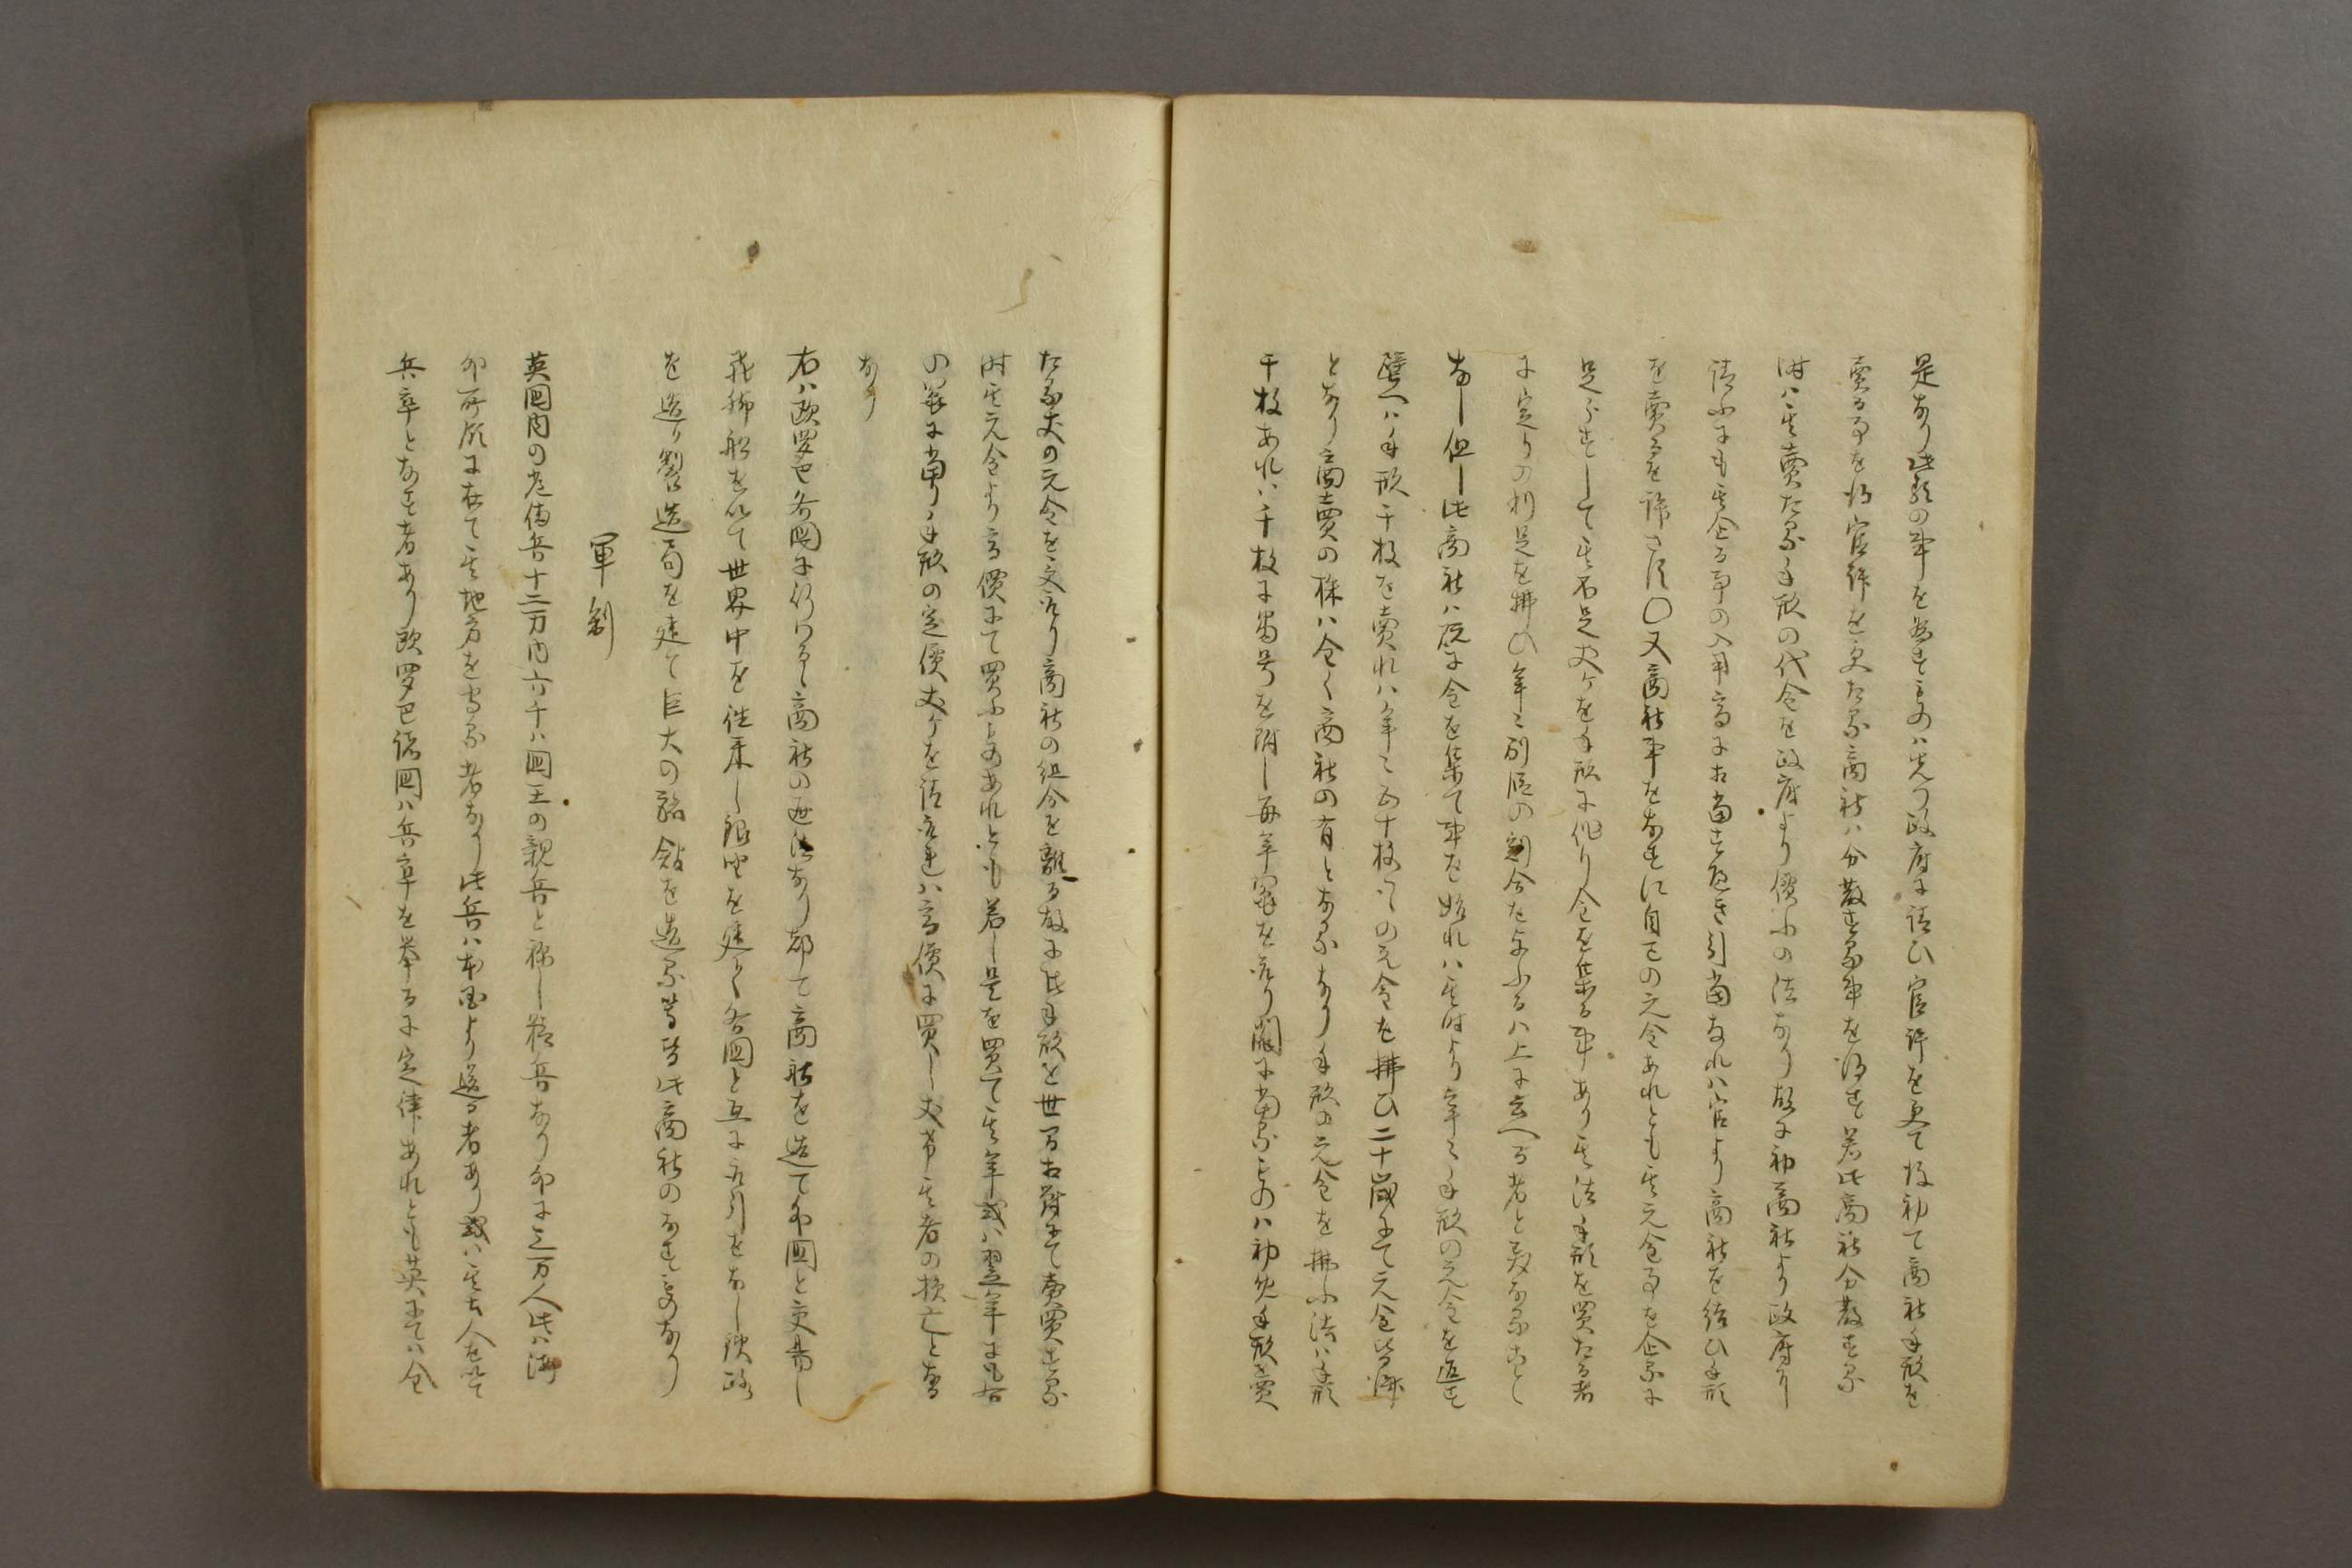 是あり此類の事を為すものハ先つ政府に請ひ官許を受て後初て商社手形を
売る事を得官許を受たる商社ハ分散する事を得す若此商社分散する
時ハ其売たる手形の代金を政府より償ふの法あり故に初商社より政府に
請ふにも其企る事の入用高に相当すへき引当なれハ官より商社を結ひ手形
を売るを許さす〇又商社事をなすに自己の元金あれとも其元金事を企るに
足らすして其不足丈ケを手形に作り金を集る事あり其法手形を買たる者
に定りの利足を払ひ年々別段の割合を与ふるハ上に云へる者と異なることし
なし但し此商社ハ既に金を集て事を始れハ其時より年々手形の元金を返す
譬へハ手形千枚を売れハ年々五十枚つゝの元金を払ひ二十歳にて元金皆済
となり商売の株ハ全く商社の有となるなり手形の元金を払ふ法ハ手形
千枚あれハ千枚に番号を附し毎年鬮を取り鬮に当るものハ初め手形を買
たる丈の元金を受取り商社の組合を離る故に此手形を世間相対にて売買する
時其元金より高価にて買ふものあれとも若し是を買て其年或ハ翌年にも右
の鬮に当り手形の定価丈ケを請取れハ高価に買し丈ケ其者の損亡となる
なり
右ハ欧羅巴各国に行わるゝ商社の通法なり都て商社を造て外国と交易し
飛脚船を以て世界中を往来し銀坐を建て各国と互に取引をなし鉄路
を造り製造局を建て巨大の諸館を造る等皆此商社のなすものなり
軍制
英国内の常備兵十二万内六千ハ国王の親兵と称し精兵なり外に三万人此ハ海
外所領に在て其地方を守る者なり此兵ハ本国より送る者あり或ハ其土人を以て
兵卒となす者あり欧羅巴諸国ハ兵卒を挙るに定律あれとも英にてハ全